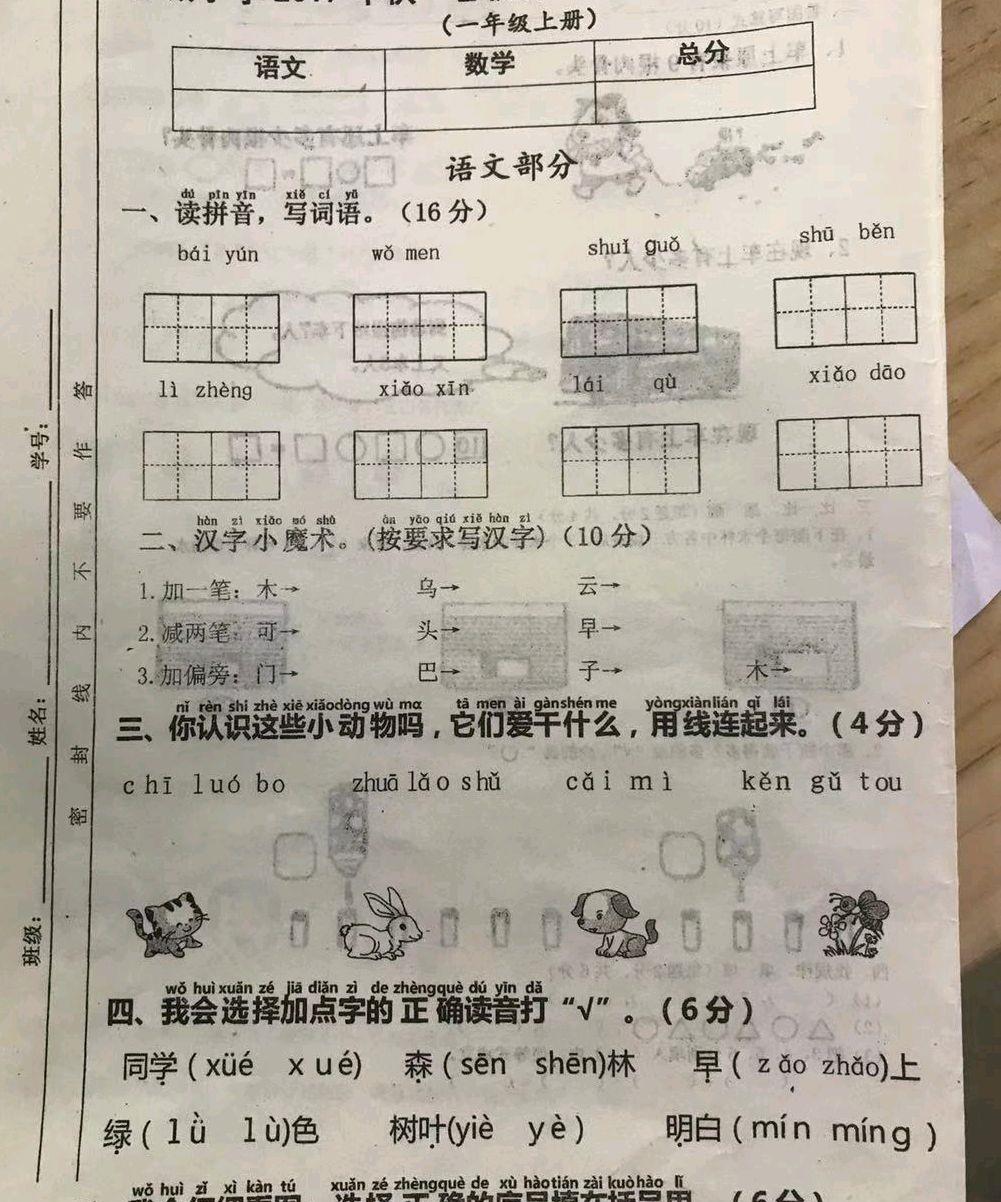 (一年级上册)
语文 数学 总分
语文部分
dú pīn yīn xiě cí yǔ
一、读拼音，写词语。（16 分）
bái yún wǒ men shuǐ guǒ shū běn
lì zhèng xiǎo xīn lái qù xiǎo dāo
hàn zì xiǎo mó shù àn yāo qiú xiě hàn zì
二、汉字小魔术。(按要求写汉字)（10 分）
1. 加一笔: 木→ 乌→ 云→
2. 减两笔: 可→ 头→ 早→
3. 加偏旁: 门→ 巴→ 子→ 木→
nǐ rèn shi zhè xiē xiǎodòng wù ma tā men ài gànshén me yòngxiànlián qǐ lái
三、你认识这些小动物吗，它们爱干什么，用线连起来。（4 分）
chī luó bo zhuā lǎo shǔ cǎi mì kěn gǔ tou
wǒ huì xuǎn zé jiā diǎn zì de zhèngquè dú yīn dǎ
四、我会选择加点字的正确读音打“√”。（6 分）
同学（xüé xué) 森（sēn shēn)林 早（zǎo zhǎo)上
绿（lǜ lù)色 树叶(yiè yè） 明白（mín míng）
wǒ huì zǐ xì kàn tú xuǎn zé zhèngquè de xù hàotián zài kuòhào lǐ
班级: 姓名: 学号:
密 封 线 内 不 要 作 答